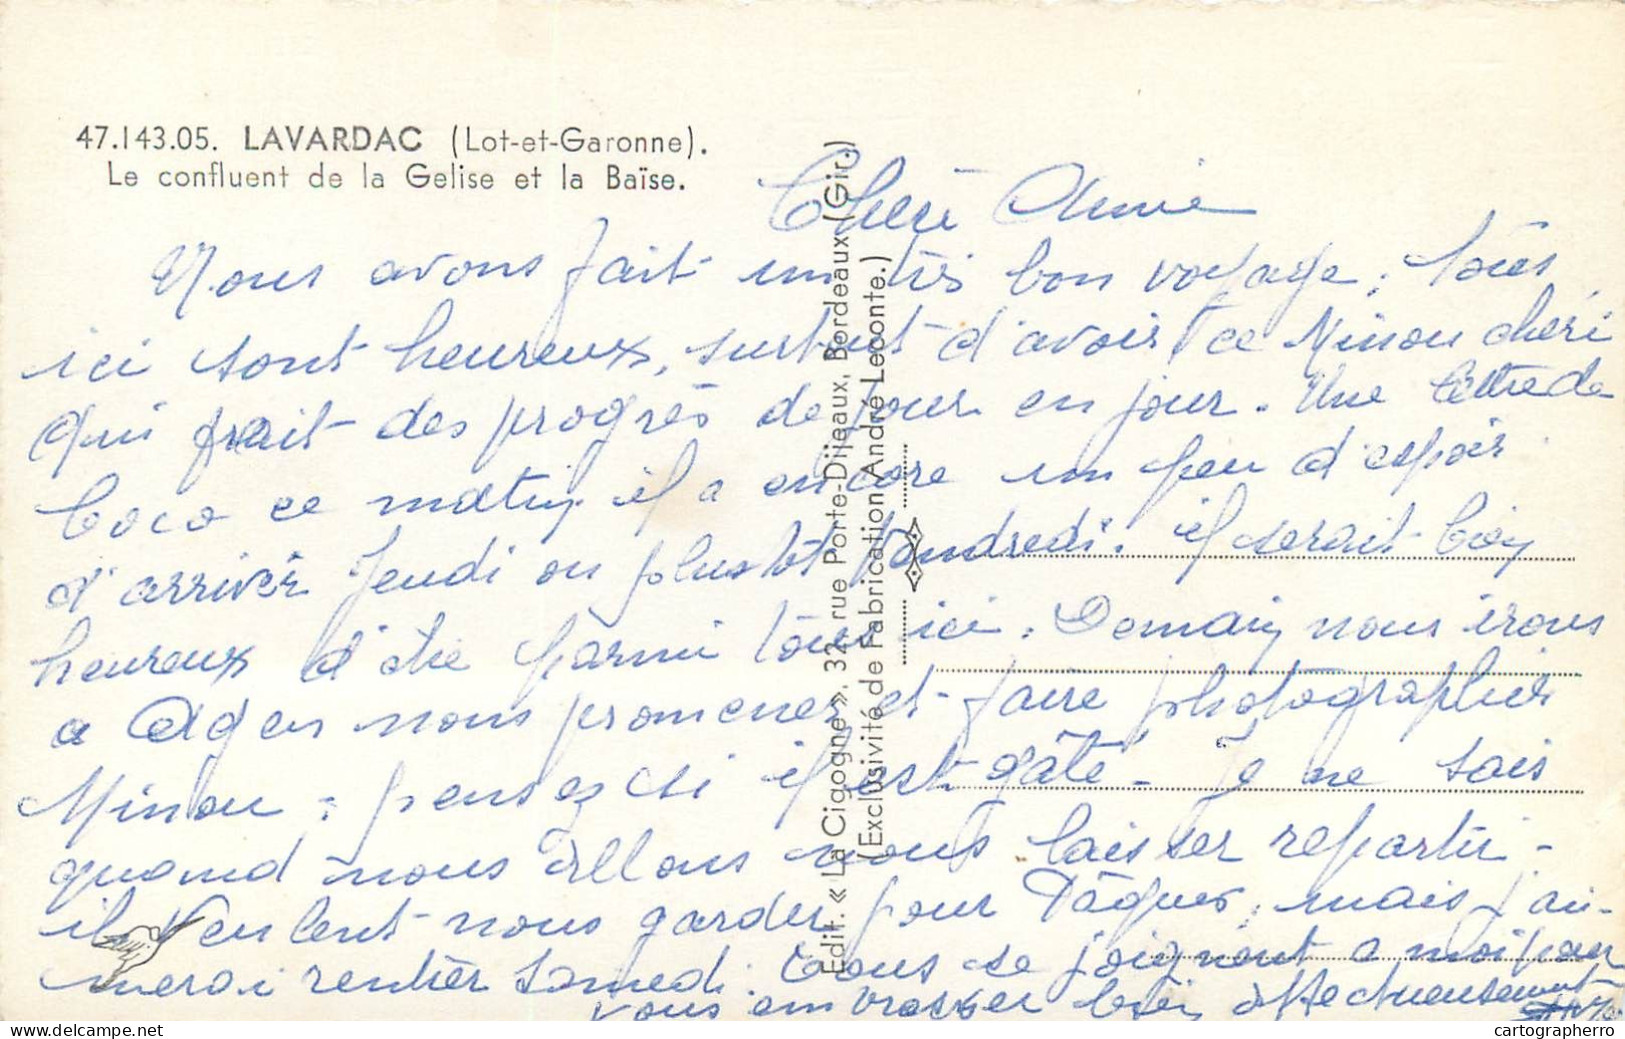 47.143.05. LAVARDAC (Lot-et-Garonne).
Le confluent de la Gelise et la Baïse.
Nous avons fait un très bon voyage, tous
ici sont heureux, surtout d'avoir ce Minou cheri
qui fait des progrès de jour en jour. Une lettre de
Coco ce matin il a encore un peu d'espoir
d'arriver Jeudi ou plustôt Vendredi. il serait bien
heureux d'être parmi tous ici. Demain nous irons
a Agen nous promener et faire photographier
Minou, pensez si il est gâté - Je ne sais
quand nous allons nous laisser repartir -
il veulent nous garder pour Pâques, mais j'ai-
merai rentrer Samedi. Tous se joignent a moi pour
vous embrasser bien affectueusement
Edit. « La Cigogne », 32, rue Porte-Dijeaux, Bordeaux (Gir.)
(Exclusivité de Fabrication André Leconte.)
cartographerro